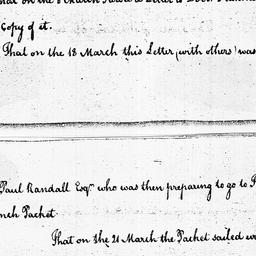 Copy of it.
That on the 18 March this Letter (with others) was
Paul Randall Esqr. who was then preparing to go to
nch Packet.
That on the 21 March the Packet sailed